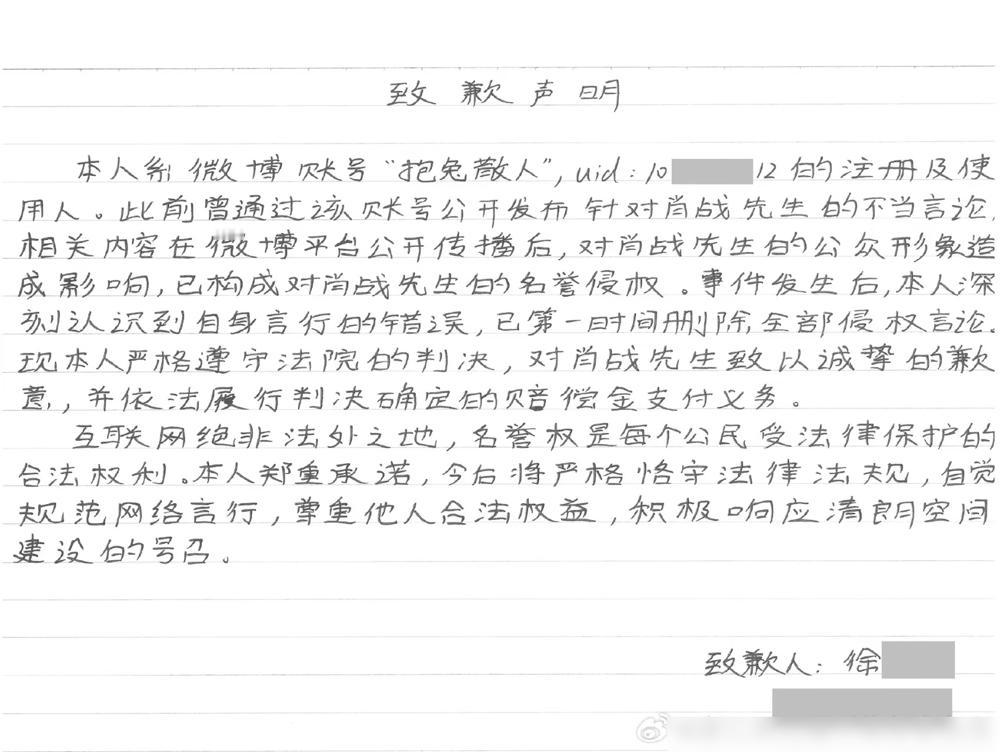 致歉声明
本人系微博账号“抱兔散人”,uid:10 12的注册及使
用人。此前曾通过该账号公开发布针对肖战先生的不当言论,
相关内容在微博平台公开传播后,对肖战先生的公众形象造
成影响,已构成对肖战先生的名誉侵权。事件发生后,本人深
刻认识到自身言行的错误,已第一时间删除全部侵权言论。
现本人严格遵守法院的判决,对肖战先生致以诚挚的歉
意,并依法履行判决确定的赔偿金支付义务。
互联网绝非法外之地,名誉权是每个公民受法律保护的
合法权利。本人郑重承诺,今后将严格恪守法律法规,自觉
规范网络言行,尊重他人合法权益,积极响应清朗空间
建设的号召。
致歉人:徐